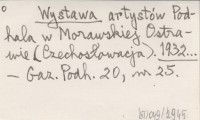 Wystawa artystów Pod-
hala w Morawskiej Ostra-
wie (Czechosłowacja). 1932...
— Gaz. Podh. 20, nr 25.
/1945